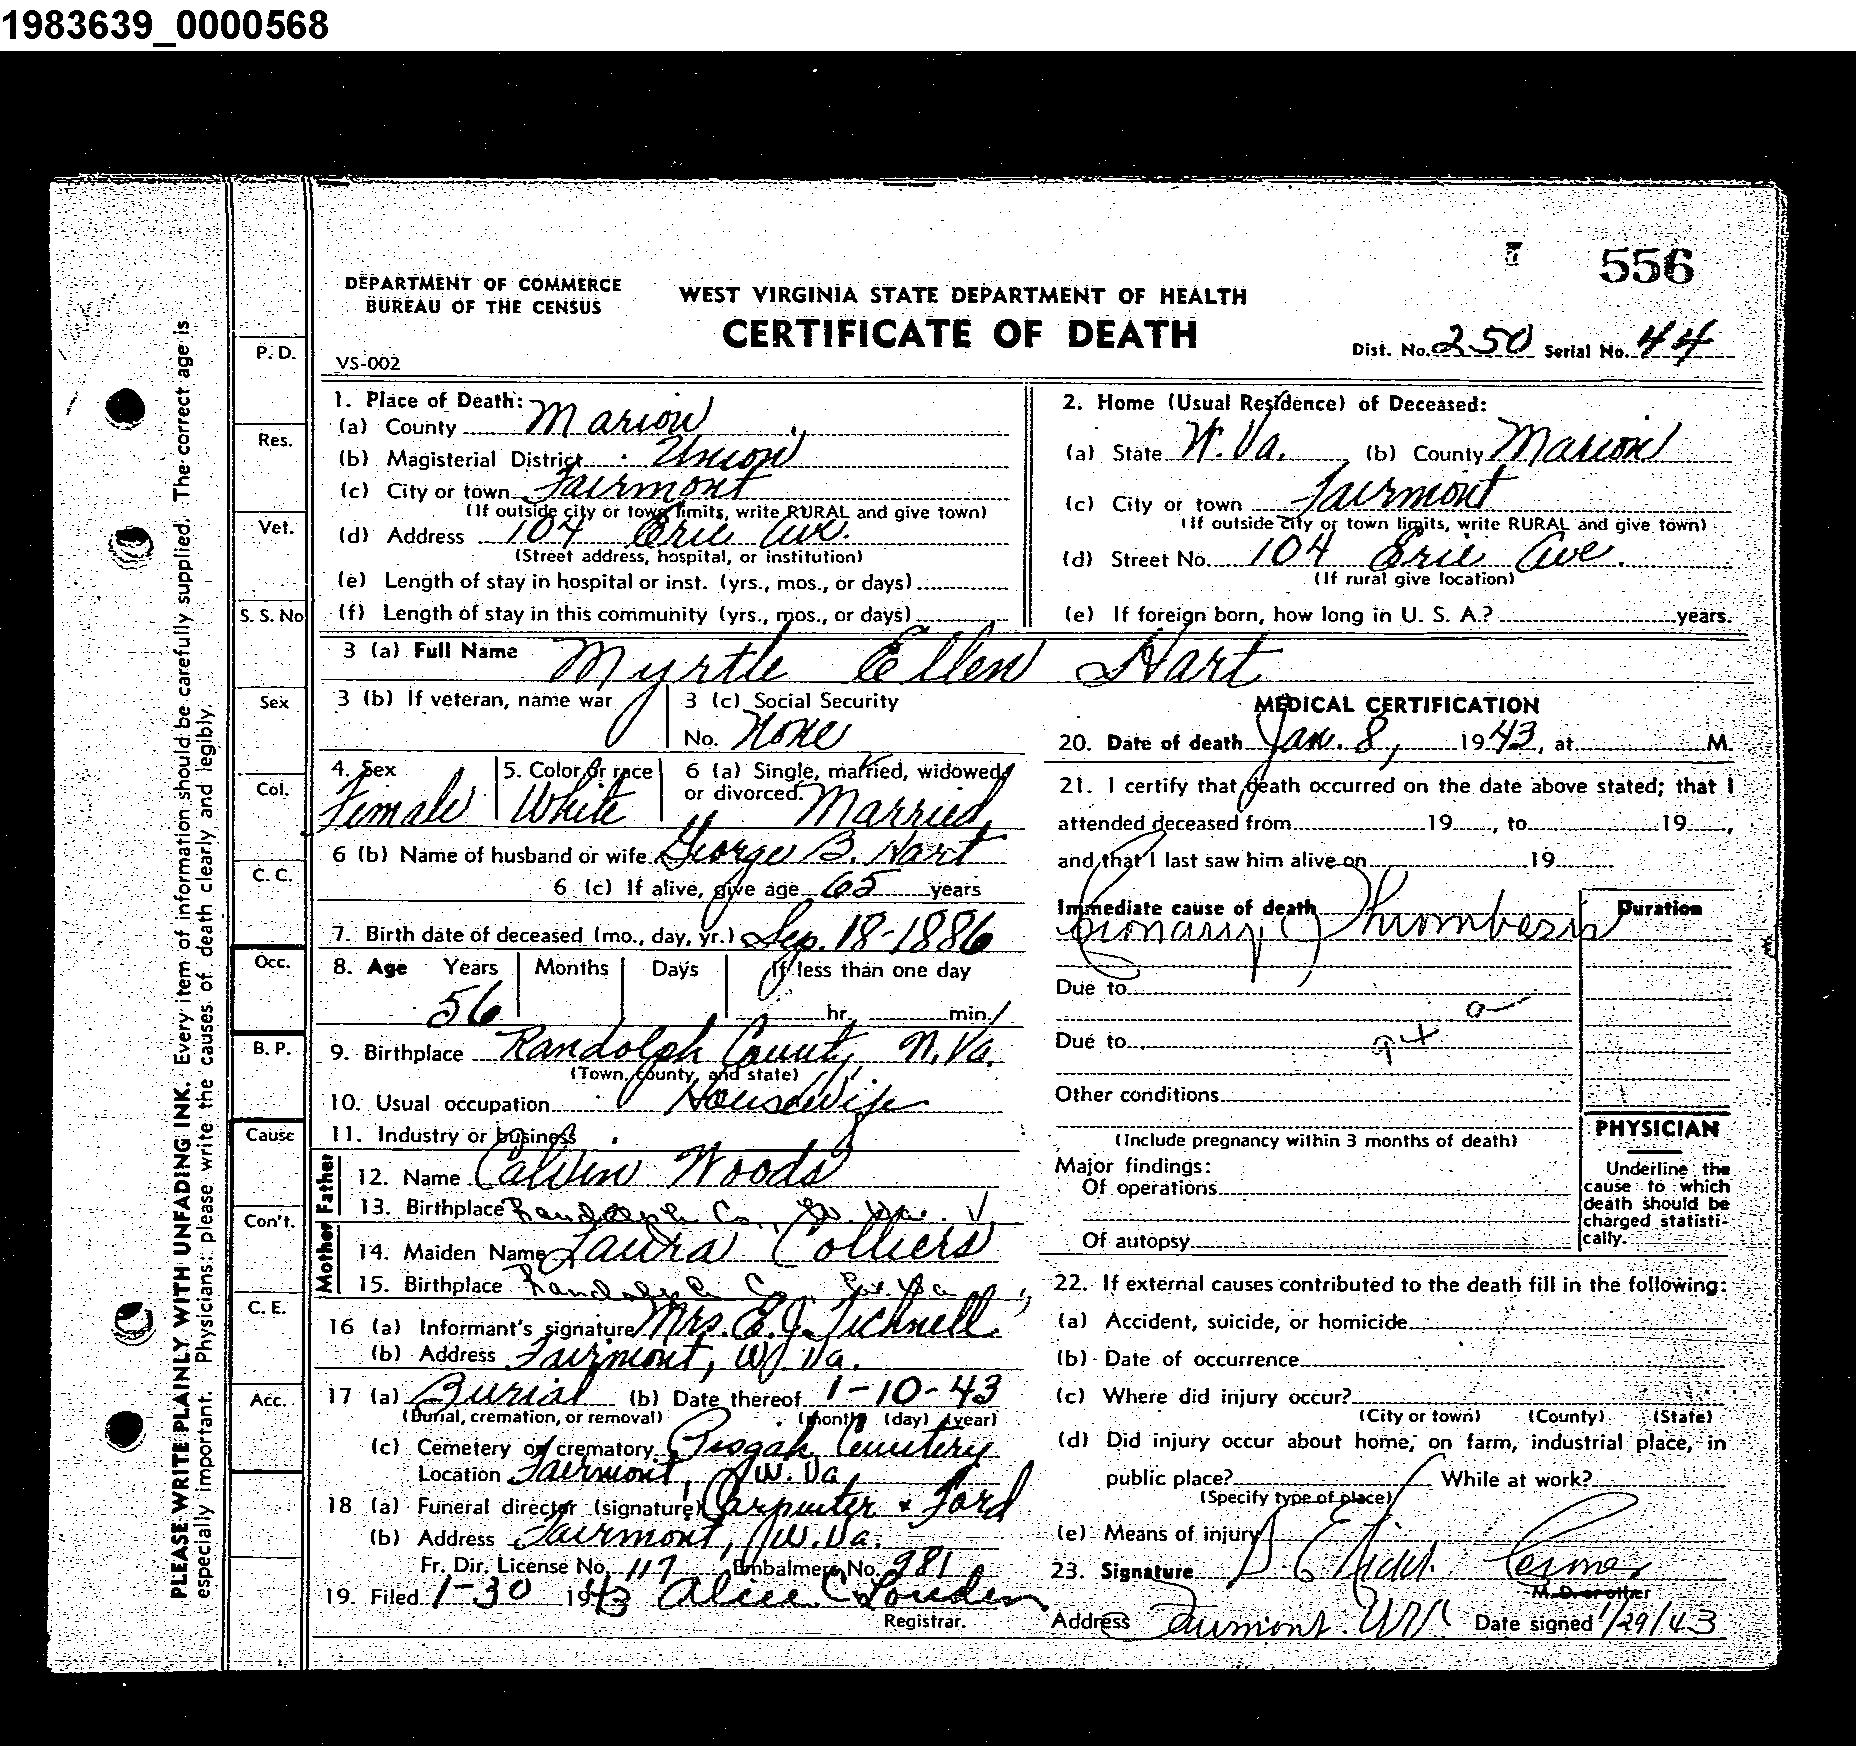 1983639_0000568
556
DEPARTMENT OF COMMERCE
BUREAU OF THE CENSUS
WEST VIRGINIA STATE DEPARTMENT OF HEALTH
CERTIFICATE OF DEATH
VS-002
Dist. No. 250 Serial No. 44
PLEASE WRITE PLAINLY WITH UNFADING INK. Every item of information should be carefully supplied. The correct age is
especially important. Physicians: please write the causes of death clearly and legibly.
P. D.
Res.
Vet.
S. S. No
Sex
Col.
C. C.
Occ.
B. P.
Cause
Con't.
C. E.
Acc.
1. Place of Death:
(a) County Marion
(b) Magisterial District Union
(c) City or town Fairmont
(If outside city or town limits, write RURAL and give town)
(d) Address 104 Erie Ave.
(Street address, hospital, or institution)
(e) Length of stay in hospital or inst. (yrs., mos., or days)
(f) Length of stay in this community (yrs., mos., or days)
2. Home (Usual Residence) of Deceased:
(a) State W. Va. (b) County Marion
(c) City or town Fairmont
(If outside city or town limits, write RURAL and give town)
(d) Street No. 104 Erie Ave.
(If rural give location)
(e) If foreign born, how long in U. S. A.? years.
3 (a) Full Name Myrtle Ellen Hart
3 (b) If veteran, name war
3 (c) Social Security
No. None
4. Sex
Female
5. Color or race
White
6 (a) Single, married, widowed,
or divorced. Married
6 (b) Name of husband or wife George B. Hart
6 (c) If alive, give age 65 years
7. Birth date of deceased (mo., day, yr.) Sep. 18-1886
8. Age Years Months Days If less than one day
56 hr. min.
9. Birthplace Randolph County, W. Va.
(Town, county, and state)
10. Usual occupation Housewife
11. Industry or business
Father
12. Name Calvin Woods
13. Birthplace Randolph Co., W. Va.
Mother
14. Maiden Name Laura Colliers
15. Birthplace Randolph Co., W. Va
16 (a) Informant's signature Mrs. E. J. Tichnell
(b) Address Fairmont, W. Va.
17 (a) Burial (b) Date thereof 1-10-43
(Burial, cremation, or removal) (month) (day) (year)
(c) Cemetery or crematory Pisgah Cemetery
Location Fairmont, W. Va
18 (a) Funeral director (signature) Carpenter & Ford
(b) Address Fairmont, W. Va.
Fr. Dir. License No. 117 Embalmers No. 981
19. Filed 1-30 1943 Alice C. Louden
Registrar.
MEDICAL CERTIFICATION
20. Date of death Jan. 8, 1943, at M.
21. I certify that death occurred on the date above stated; that I
attended deceased from 19 , to 19 ,
and that I last saw him alive on 19
Immediate cause of death Duration
Thrombosis
Due to
Due to 94 a
Other conditions
(Include pregnancy within 3 months of death)
Major findings:
Of operations
Of autopsy
PHYSICIAN
Underline the
cause to which
death should be
charged statisti-
cally.
22. If external causes contributed to the death fill in the following:
(a) Accident, suicide, or homicide
(b) Date of occurrence
(c) Where did injury occur?
(City or town) (County) (State)
(d) Did injury occur about home, on farm, industrial place, in
public place? While at work?
(Specify type of place)
(e) Means of injury
23. Signature
M. D. or other
Address Fairmont. W Va Date signed 1/29/43